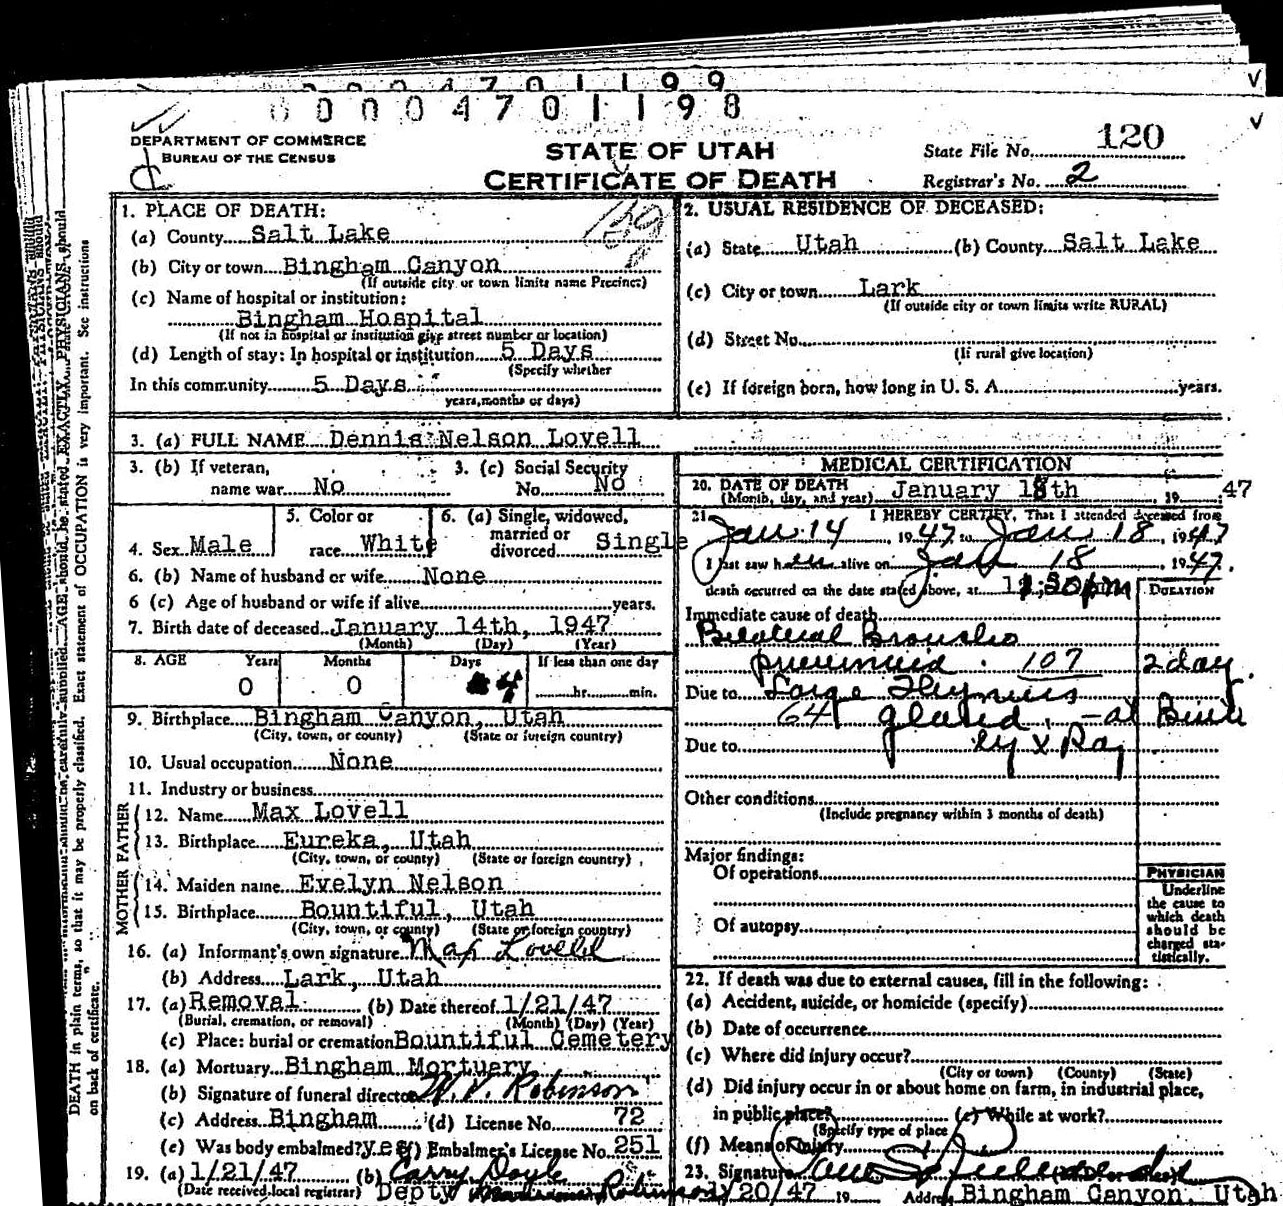 0000470 1199
0 0 0 0 4 7 0 1 1 9 8
DEPARTMENT OF COMMERCE
BUREAU OF THE CENSUS
STATE OF UTAH
CERTIFICATE OF DEATH
State File No. 120
Registrar's No. 2
1. PLACE OF DEATH:
(a) County Salt Lake
(b) City or town Bingham Canyon
(If outside city or town limits name Precinct)
(c) Name of hospital or institution:
Bingham Hospital
(If not in hospital or institution give street number or location)
(d) Length of stay: In hospital or institution 5 Days
(Specify whether
In this community 5 Days
years, months or days)
2. USUAL RESIDENCE OF DECEASED:
(a) State Utah (b) County Salt Lake
(c) City or town Lark
(If outside city or town limits write RURAL)
(d) Street No.
(If rural give location)
(e) If foreign born, how long in U. S. A. years.
3. (a) FULL NAME Dennis Nelson Lovell
3. (b) If veteran, name war No
3. (c) Social Security No. No
4. Sex Male
5. Color or race White
6. (a) Single, widowed, married or divorced Single
6. (b) Name of husband or wife None
6 (c) Age of husband or wife if alive years.
7. Birth date of deceased January 14th, 1947
(Month) (Day) (Year)
8. AGE Years Months Days If less than one day
0 0 4 hr. min.
9. Birthplace Bingham Canyon, Utah
(City, town, or county) (State or foreign country)
10. Usual occupation None
11. Industry or business
FATHER
12. Name Max Lovell
13. Birthplace Eureka, Utah
(City, town, or county) (State or foreign country)
MOTHER
14. Maiden name Evelyn Nelson
15. Birthplace Bountiful, Utah
(City, town, or county) (State or foreign country)
16. (a) Informant's own signature Max Lovell
(b) Address Lark, Utah
17. (a) Removal (b) Date thereof 1/21/47
(Burial, cremation, or removal) (Month) (Day) (Year)
(c) Place: burial or cremation Bountiful Cemetery
18. (a) Mortuary Bingham Mortuary
(b) Signature of funeral director W. V. Robinson
(c) Address Bingham (d) License No. 72
(e) Was body embalmed? yes (f) Embalmer's License No. 251
19. (a) 1/21/47 (b) Carry Doyle
(Date received local registrar) Depty Robinson
MEDICAL CERTIFICATION
20. DATE OF DEATH
(Month, day, and year) January 18th, 19 47
21. I HEREBY CERTIFY, That I attended deceased from
Jan 14, 1947 to Jan 18, 1947
I last saw him alive on Jan 18 1947.
death occurred on the date stated above, at :30 pm DURATION
Immediate cause of death
Bilateral Broncho
pneumonia. 107 2 day.
Due to Large Thymus
64 gland, - at Birth
Due to by X Ray
Other conditions
(Include pregnancy within 3 months of death)
Major findings:
Of operations
Of autopsy
PHYSICIAN
Underline
the cause to
which death
should be
charged sta-
tistically.
22. If death was due to external causes, fill in the following:
(a) Accident, suicide, or homicide (specify)
(b) Date of occurrence
(c) Where did injury occur?
(City or town) (County) (State)
(d) Did injury occur in or about home on farm, in industrial place,
in public place? (e) While at work?
(Specify type of place
(f) Means of injury
23. Signature
1/20/47 19 Address Bingham Canyon, Utah
DEATH in plain terms, so that it may be properly classified. Exact statement of OCCUPATION is very important. See instructions
on back of certificate.